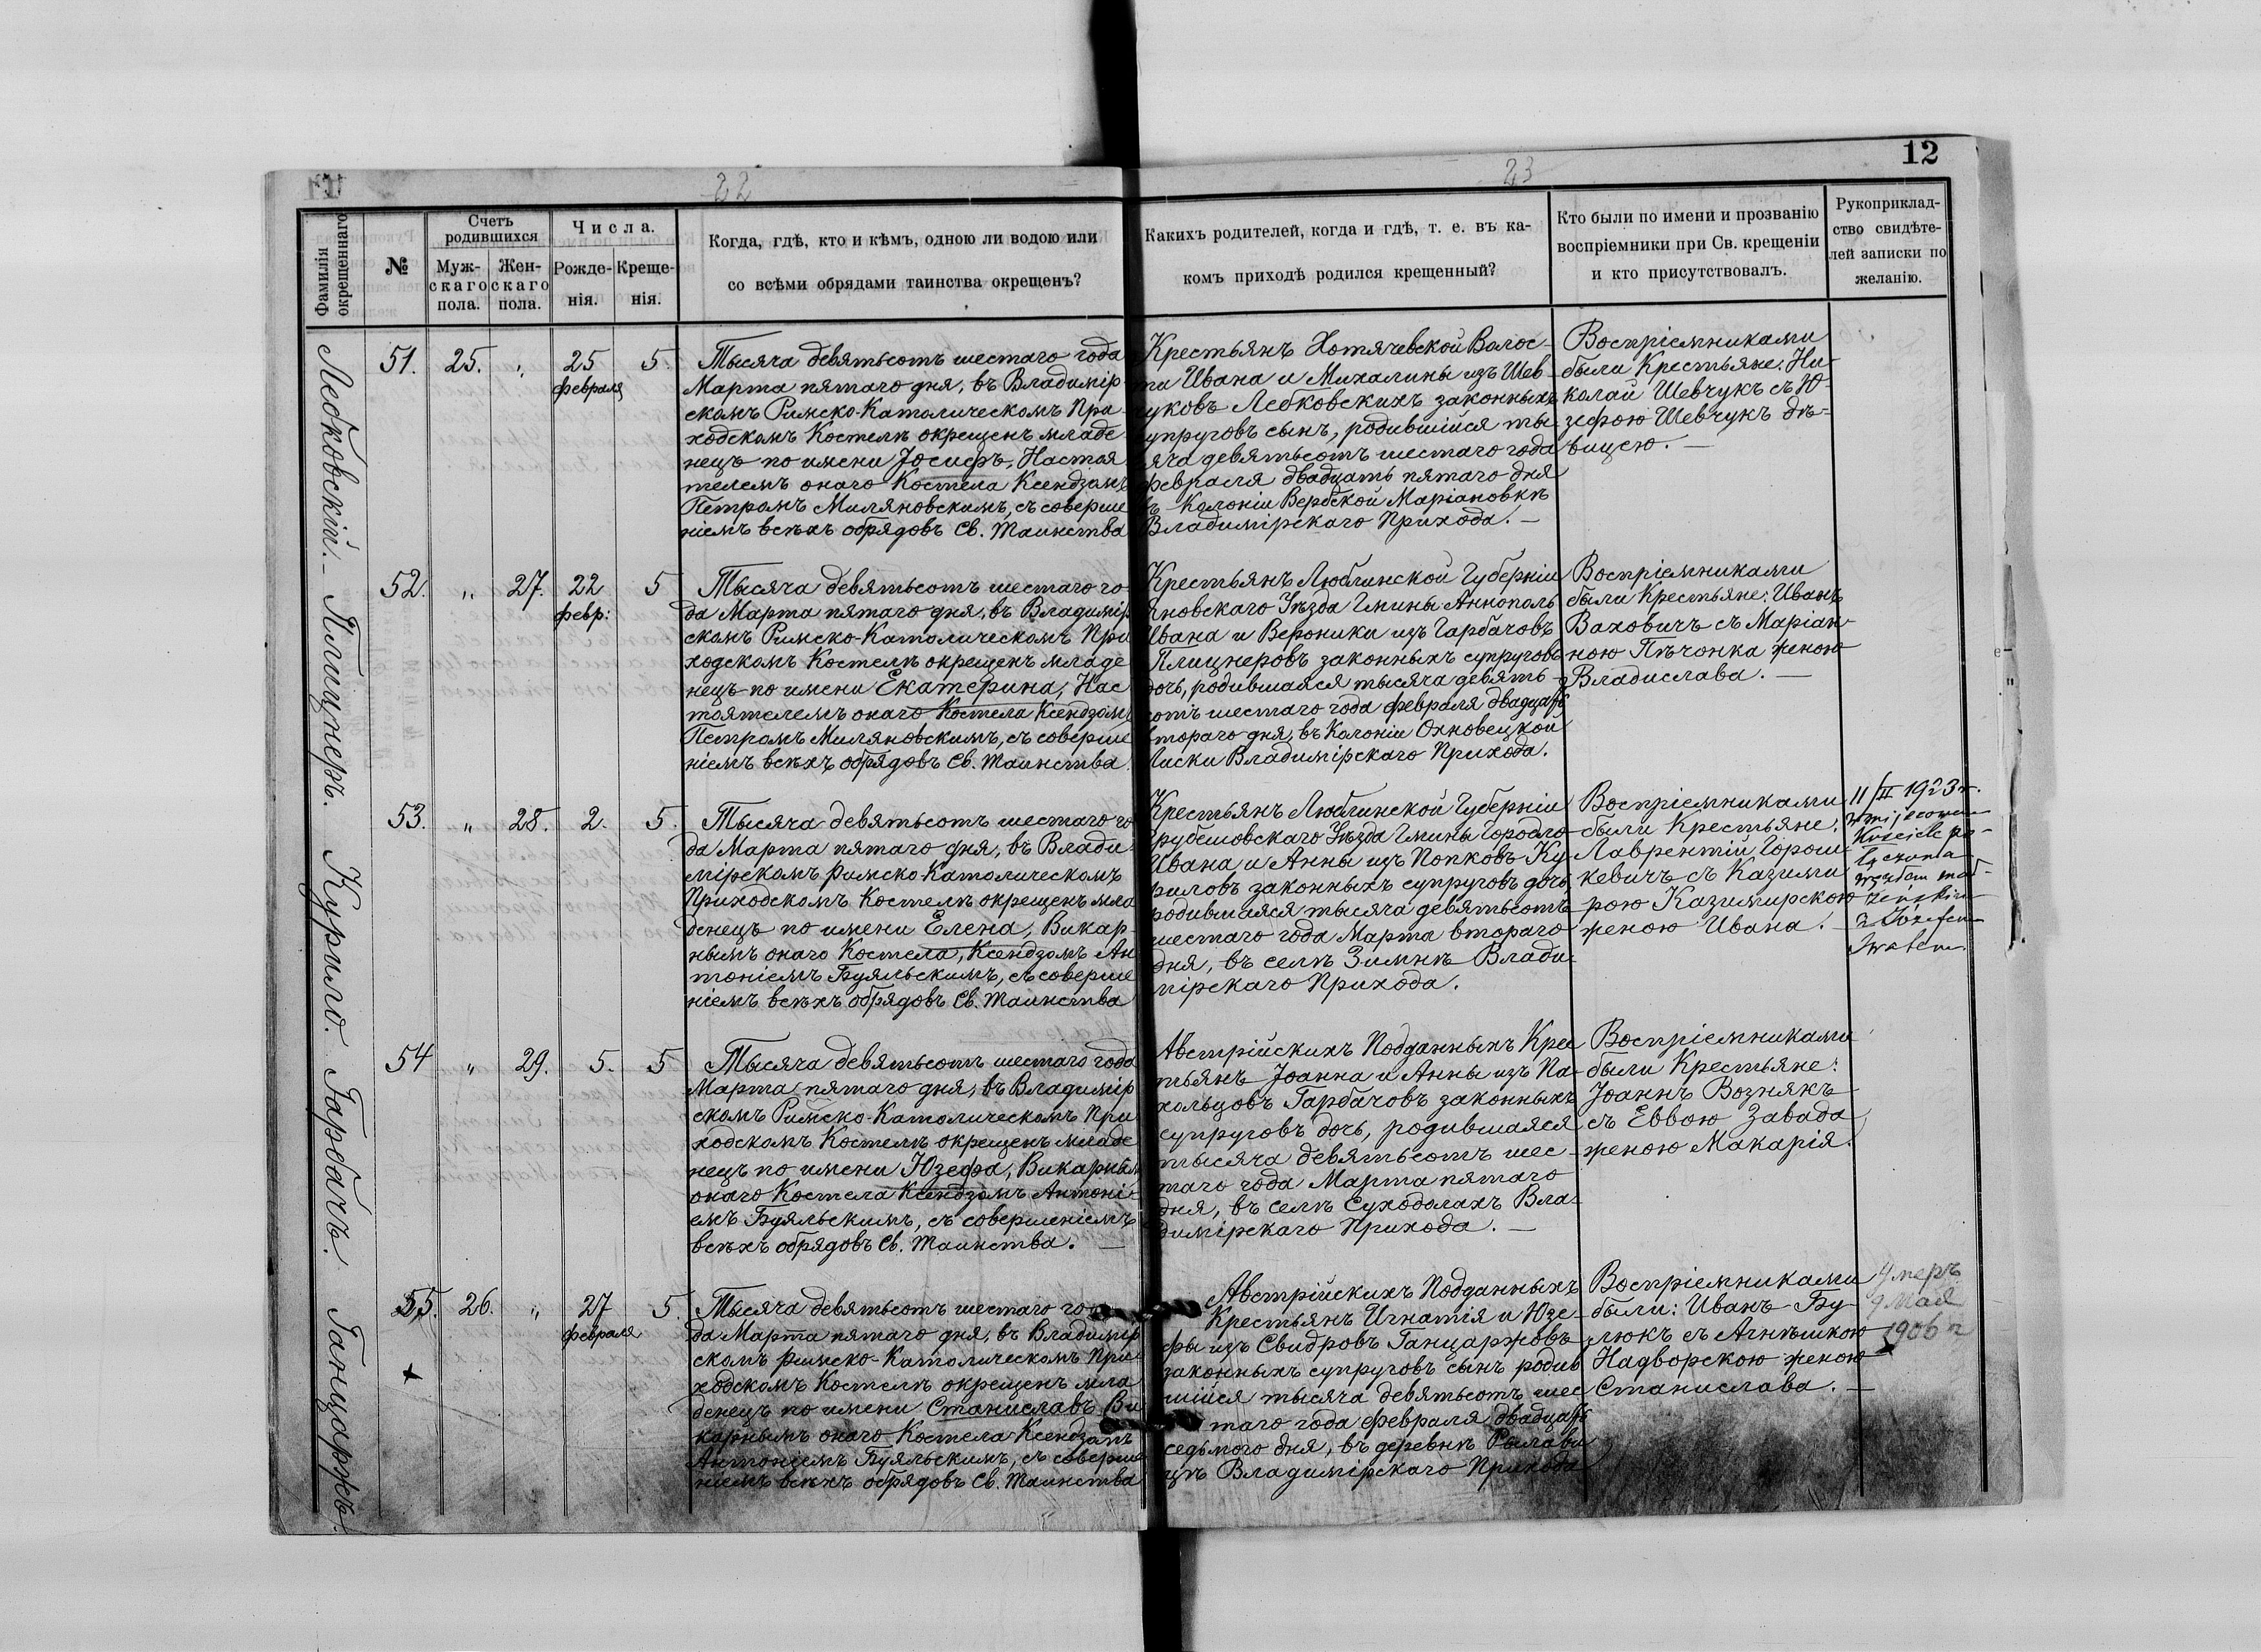 12
22
23
Фамилія окрещеннаго
№
Счетъ родившихся
Муж-
скаго
пола.
Жен-
скаго
пола.
Числа.
Рожде-
нія.
Креще-
нія.
Когда, гдѣ, кто и кѣмъ, одною ли водою или
со всѣми обрядами таинства окрещенъ?
Какихъ родителей, когда и гдѣ, т. е. въ ка-
комъ приходѣ родился крещенный?
Кто были по имени и прозванію
воспріемники при Св. крещеніи
и кто присутствовалъ.
Рукоприклад-
ство свидѣте-
лей записки по
желанію.
Лебковскій.
51. 25. „ 25 февраля 5.
Тысяча девятьсотъ шестаго года
Марта пятаго дня, въ Владимір-
скомъ Римско-Католическомъ При-
ходскомъ Костелѣ окрещенъ младе
нецъ по имени Іосифъ, Настоя
телемъ онаго Костела Ксендзомъ
Петромъ Миляновскимъ, съ соверше
ніемъ всѣхъ обрядовъ Св. Таинства
Крестьянъ Хотячевской Волос-
ти Ивана и Михалины изъ Шев-
чуковъ Лебковскихъ законныхъ
супруговъ сынъ, родившійся ты-
сяча девятьсотъ шестаго года
февраля двадцать пятаго дня
въ Колоніи Вербской Маріановкѣ
Владимірскаго Прихода. —
Воспріемниками
были Крестьяне: Ни-
колай Шевчукъ съ Ю-
зефою Шевчукъ дѣ-
вицею. —
Плицнеръ.
52. „ 27. 22 февр: 5
Тысяча девятьсотъ шестаго го-
да Марта пятаго дня, въ Владимір
скомъ Римско-Католическомъ При
ходскомъ Костелѣ окрещенъ младе
нецъ по имени Екатерина, Нас
тоятелемъ онаго Костела Ксендзомъ
Петромъ Миляновскимъ, съ соверше
ніемъ всѣхъ обрядовъ Св. Таинства.
Крестьянъ Люблинской Губерніи
Яновскаго Уѣзда Гмины Аннополь
Ивана и Вероники изъ Гарбачовъ
Плицнеровъ законныхъ супруговъ
дочь, родившаяся тысяча девять-
сотъ шестаго года февраля двадцать
втораго дня, въ Колоніи Охновецкой
Лиски Владимірскаго Прихода.
Воспріемниками
были Крестьяне: Иванъ
Ваховичъ съ Маріан-
ною Пѣчонка женою
Владислава. —
Курило.
53. „ 28. 2. 5.
Тысяча девятьсотъ шестаго го
да Марта пятаго дня, въ Влади-
мірскомъ Римско-Католическомъ
Приходскомъ Костелѣ окрещенъ мла
денецъ по имени Елена, Викар-
нымъ онаго Костела, Ксендзомъ Ан
тоніемъ Буяльскимъ, съ соверше
ніемъ всѣхъ обрядовъ Св. Таинства
Крестьянъ Люблинской Губерніи
Грубешовскаго Уѣзда Гмины Городло
Ивана и Анны изъ Попковъ Ку-
риловъ законныхъ супруговъ дочь,
родившаяся тысяча девятьсотъ
шестаго года Марта втораго
дня, въ селѣ Зимнѣ Влади-
мірскаго Прихода.
Воспріемниками
были Крестьяне:
Лаврентій Горош-
кевичъ съ Казими
рою Казимирскою
женою Ивана. —
11/II 1923 r.
w miejscowym
Kościele po-
łączona
węzłem mał-
żeńskim
z Józefem
Гарбачъ.
54 „ 29. 5. 5
Тысяча девятьсотъ шестаго года
Марта пятаго дня, въ Владимір
скомъ Римско-Католическомъ При
ходскомъ Костелѣ окрещенъ младе
нецъ по имени Юзефа, Викарнымъ
онаго Костела Ксендзомъ Антоні-
емъ Буяльскимъ, съ совершеніемъ
всѣхъ обрядовъ Св. Таинства. —
Австрійскихъ Подданныхъ Крес
тьянъ Іоанна и Анны изъ Па-
хольцовъ Гарбачовъ законныхъ
супруговъ дочь, родившаяся
тысяча девятьсотъ шес-
таго года Марта пятаго
дня, въ селѣ Суходолахъ Вла-
димірскаго Прихода. —
Воспріемниками
были Крестьяне:
Іоаннъ Вознякъ
съ Еввою Завада
женою Макарія.
Ганцаржъ.
55. 26. „ 27 февраля 5.
Тысяча девятьсотъ шестаго го
да Марта пятаго дня, въ Владимір
скомъ Римско-Католическомъ При
ходскомъ Костелѣ окрещенъ мла
денецъ по имени Станиславъ Ви
карнымъ онаго Костела Ксендзомъ
Антоніемъ Буяльскимъ, съ соверше
ніемъ всѣхъ обрядовъ Св. Таинства
Австрійскихъ Подданныхъ
Крестьянъ Игнатія и Юзе-
фы изъ Свидровъ Ганцаржовъ
законныхъ супруговъ сынъ родив
шійся тысяча девятьсотъ шес
таго года февраля двадцать
седьмого дня, въ деревнѣ Рылави
цѣ Владимірскаго Прихода
Воспріемниками
были: Иванъ Бу-
злюкъ съ Агнѣшкою
Надворскою женою
Станислава. —
Умеръ
9 Мая
1906 г